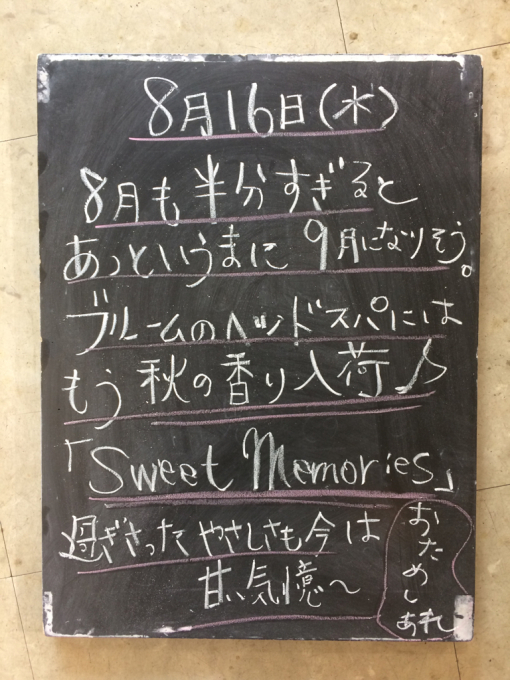 8月16日(水)
8月も半分すぎると
あっというまに9月になりそう。
ブルームのヘッドスパには
もう秋の香り入荷♪
「Sweet Memories」
過ぎさったやさしさも今は
甘い気憶〜
おためし
あれ